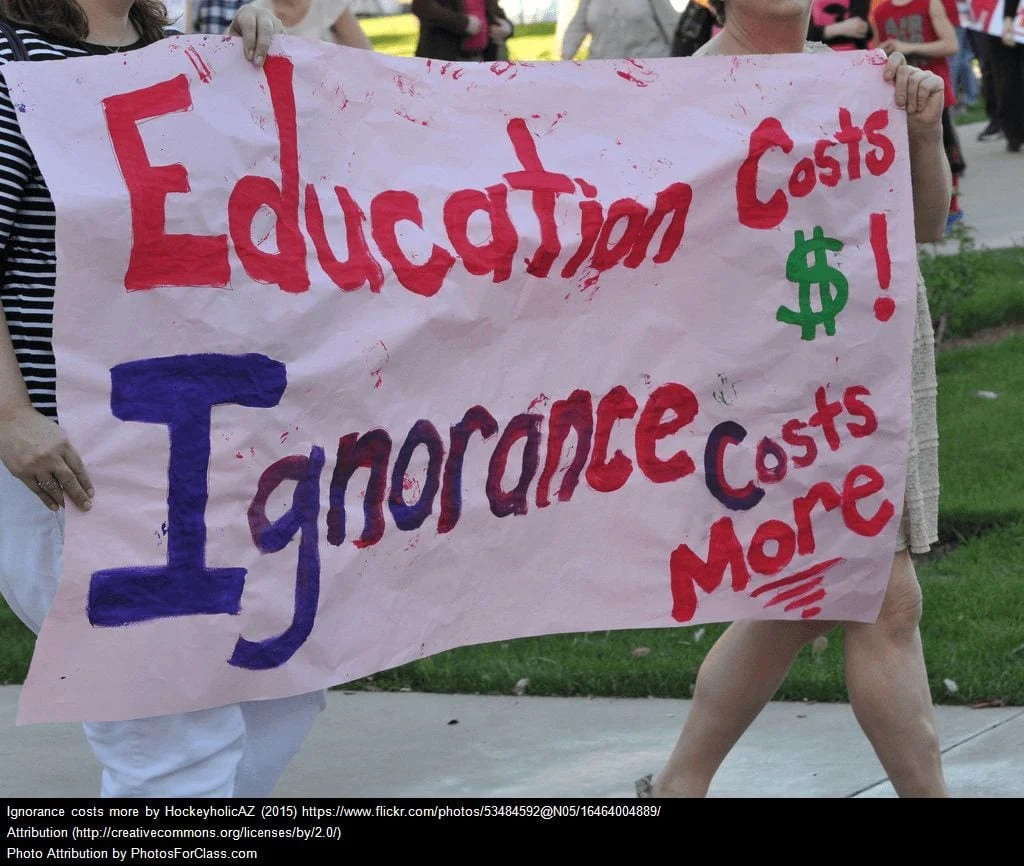 Education Costs
$!
Ignorance Costs
More
Ignorance costs more by HockeyholicAZ (2015) https://www.flickr.com/photos/53484592@N05/16464004889/
Attribution (http://creativecommons.org/licenses/by/2.0/)
Photo Attribution by PhotosForClass.com